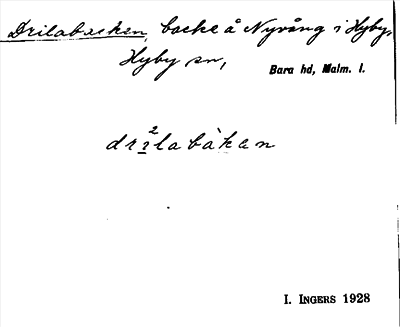 Drilabacken, backe å Nyvång i Hyby,
Hyby sn,
Bara hd, Malm. l.
dri²labàkan
I. INGERS 1928